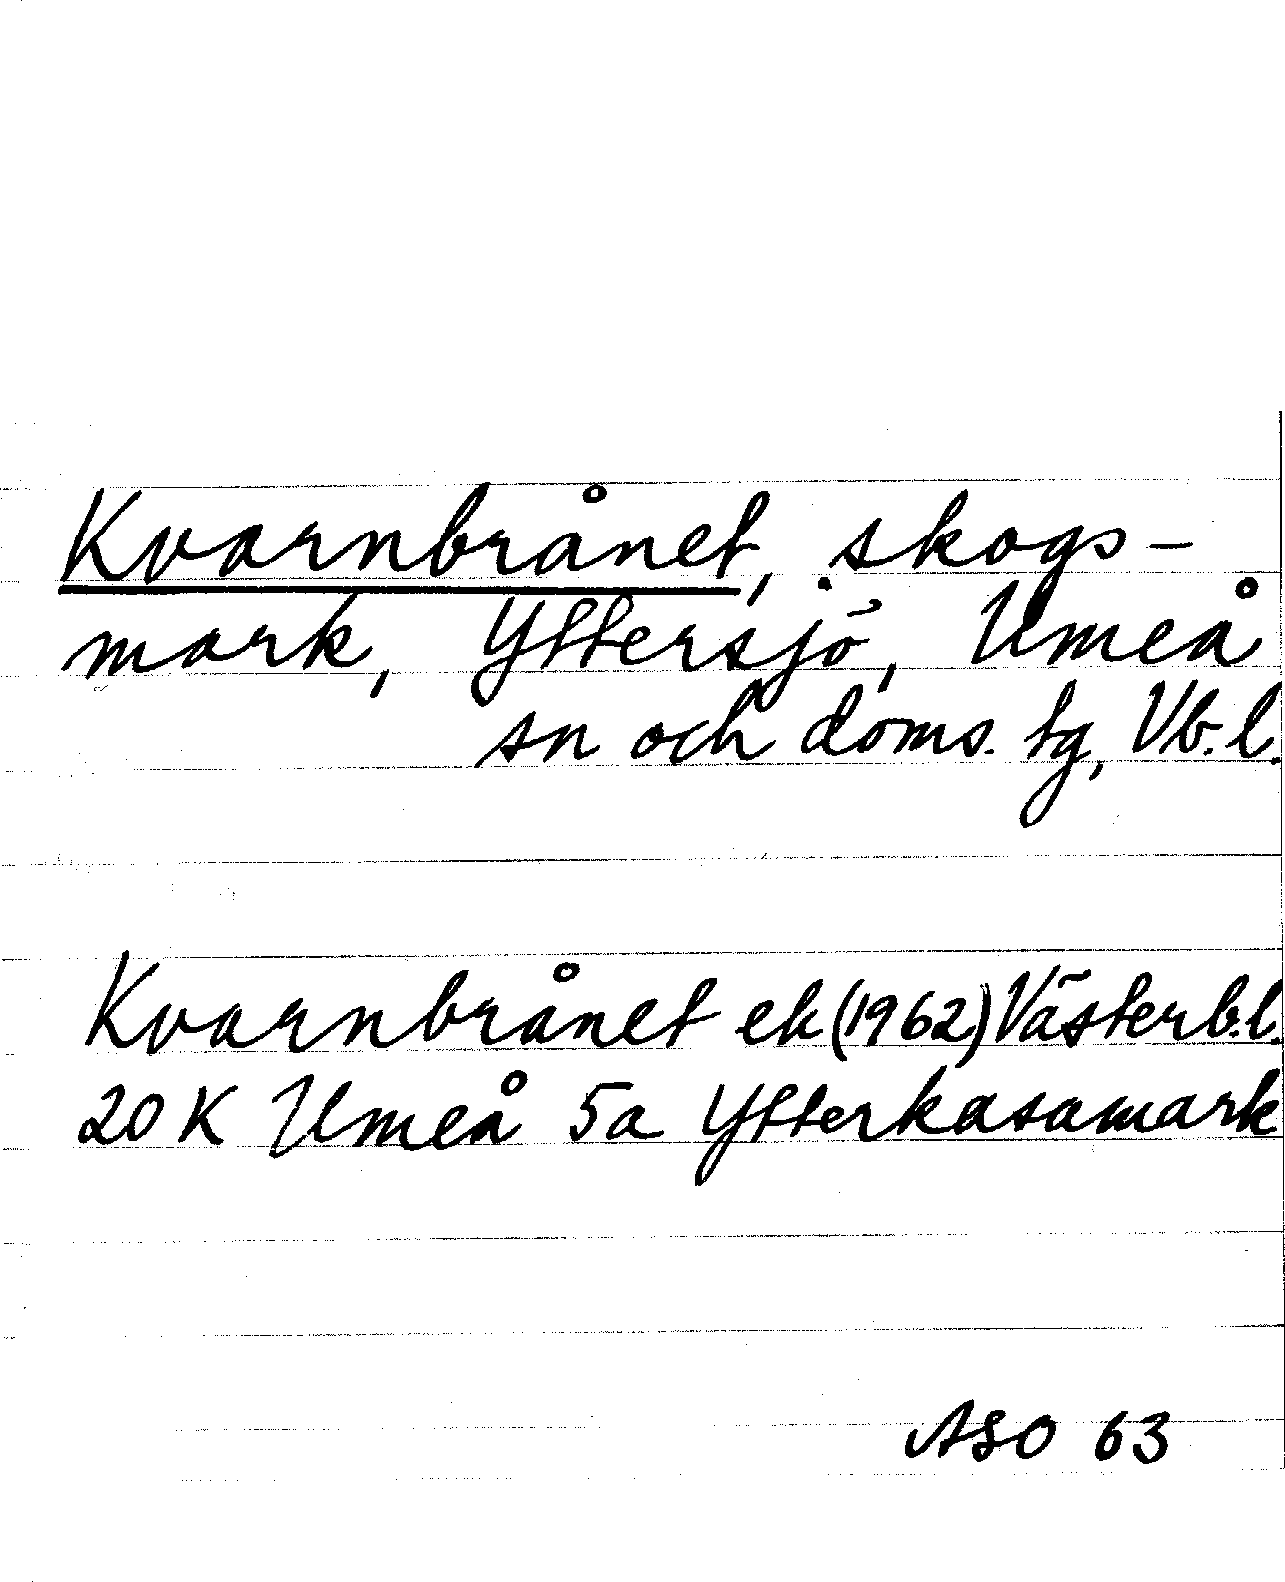 Kvarnbrånet, skogs-
mark, Yttersjö, Umeå
sn och doms. tg, Vb. l.
Kvarnbrånet ek (1962) Västerb. l.
20 K Umeå 5a Ytterkasamark
ASO 63